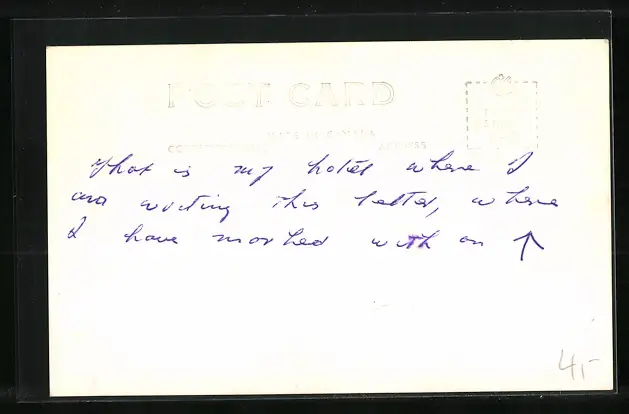 POST CARD
MADE IN CANADA
ADDRESS
That is my hotel where I
am writing this letter, where
I have marked with an ↑
4,-